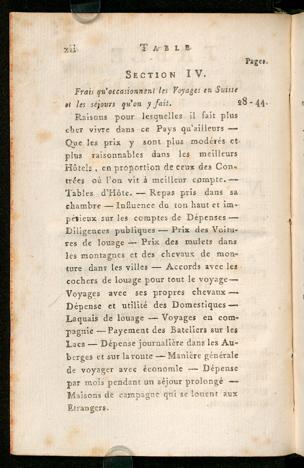 xii TABLE
Pages.
SECTION IV.
Frais qu'occasionnent les Voyages en Suisse
et les séjours qu'on y fait. 28-44.
Raisons pour lesquelles il fait plus
cher vivre dans ce Pays qu'ailleurs —
Que les prix y sont plus modérés et
plus raisonnables dans les meilleurs
Hôtels, en proportion de ceux des Con-
trées où l'on vit à meilleur compte. —
Tables d'Hôte. — Repas pris dans sa
chambre — Influence du ton haut et im-
périeux sur les comptes de Dépenses —
Diligences publiques — Prix des Voitu-
res de louage — Prix des mulets dans
les montagnes et des chevaux de mon-
ture dans les villes — Accords avec les
cochers de louage pour tout le voyage —
Voyages avec ses propres chevaux —
Dépense et utilité des Domestiques —
Laquais de louage — Voyages en com-
pagnie — Payement des Bateliers sur les
Lacs — Dépense journalière dans les Au-
berges et sur la route — Manière générale
de voyager avec économie — Dépense
par mois pendant un séjour prolongé —
Maisons de campagne qui se louent aux
Etrangers.